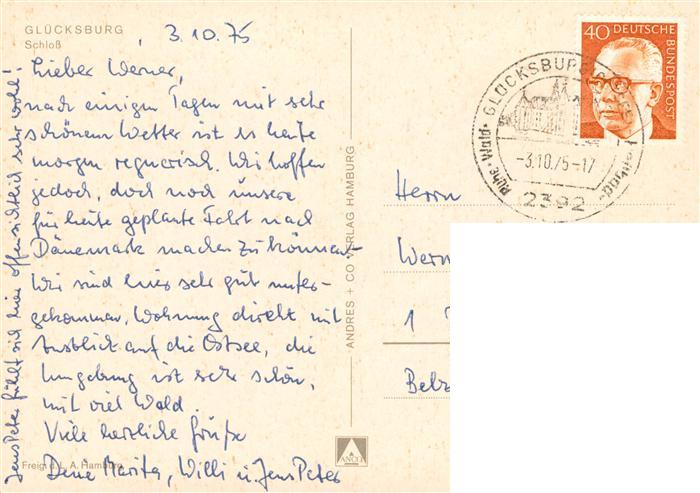 GLÜCKSBURG
Schloß
3.10.75
Lieber Werner,
nach einigen Tagen mit sehr
schönem Wetter ist es heute
morgen regnerisch. Wir hoffen
jedoch, doch noch unsere
für heute geplante Fahrt nach
Dänemark machen zu können.
Wir sind hier sehr gut unter-
gekommen, Wohnung direkt mit
Ausblick auf die Ostsee, die
Umgebung ist sehr schön,
mit viel Wald.
Viele herzliche Grüße
Deine Marita, Willi u. Jens Peter
Jens Peter fühlt sich hier offensichtlich sehr wohl!
Freig. d. L. A. Hamburg
ANDRES + CO VERLAG HAMBURG
ANCO
40 DEUTSCHE
BUNDESPOST
GLÜCKSBURG
Ruhe · Wald
-3.10.75-17
2392
Herrn
Wern
1